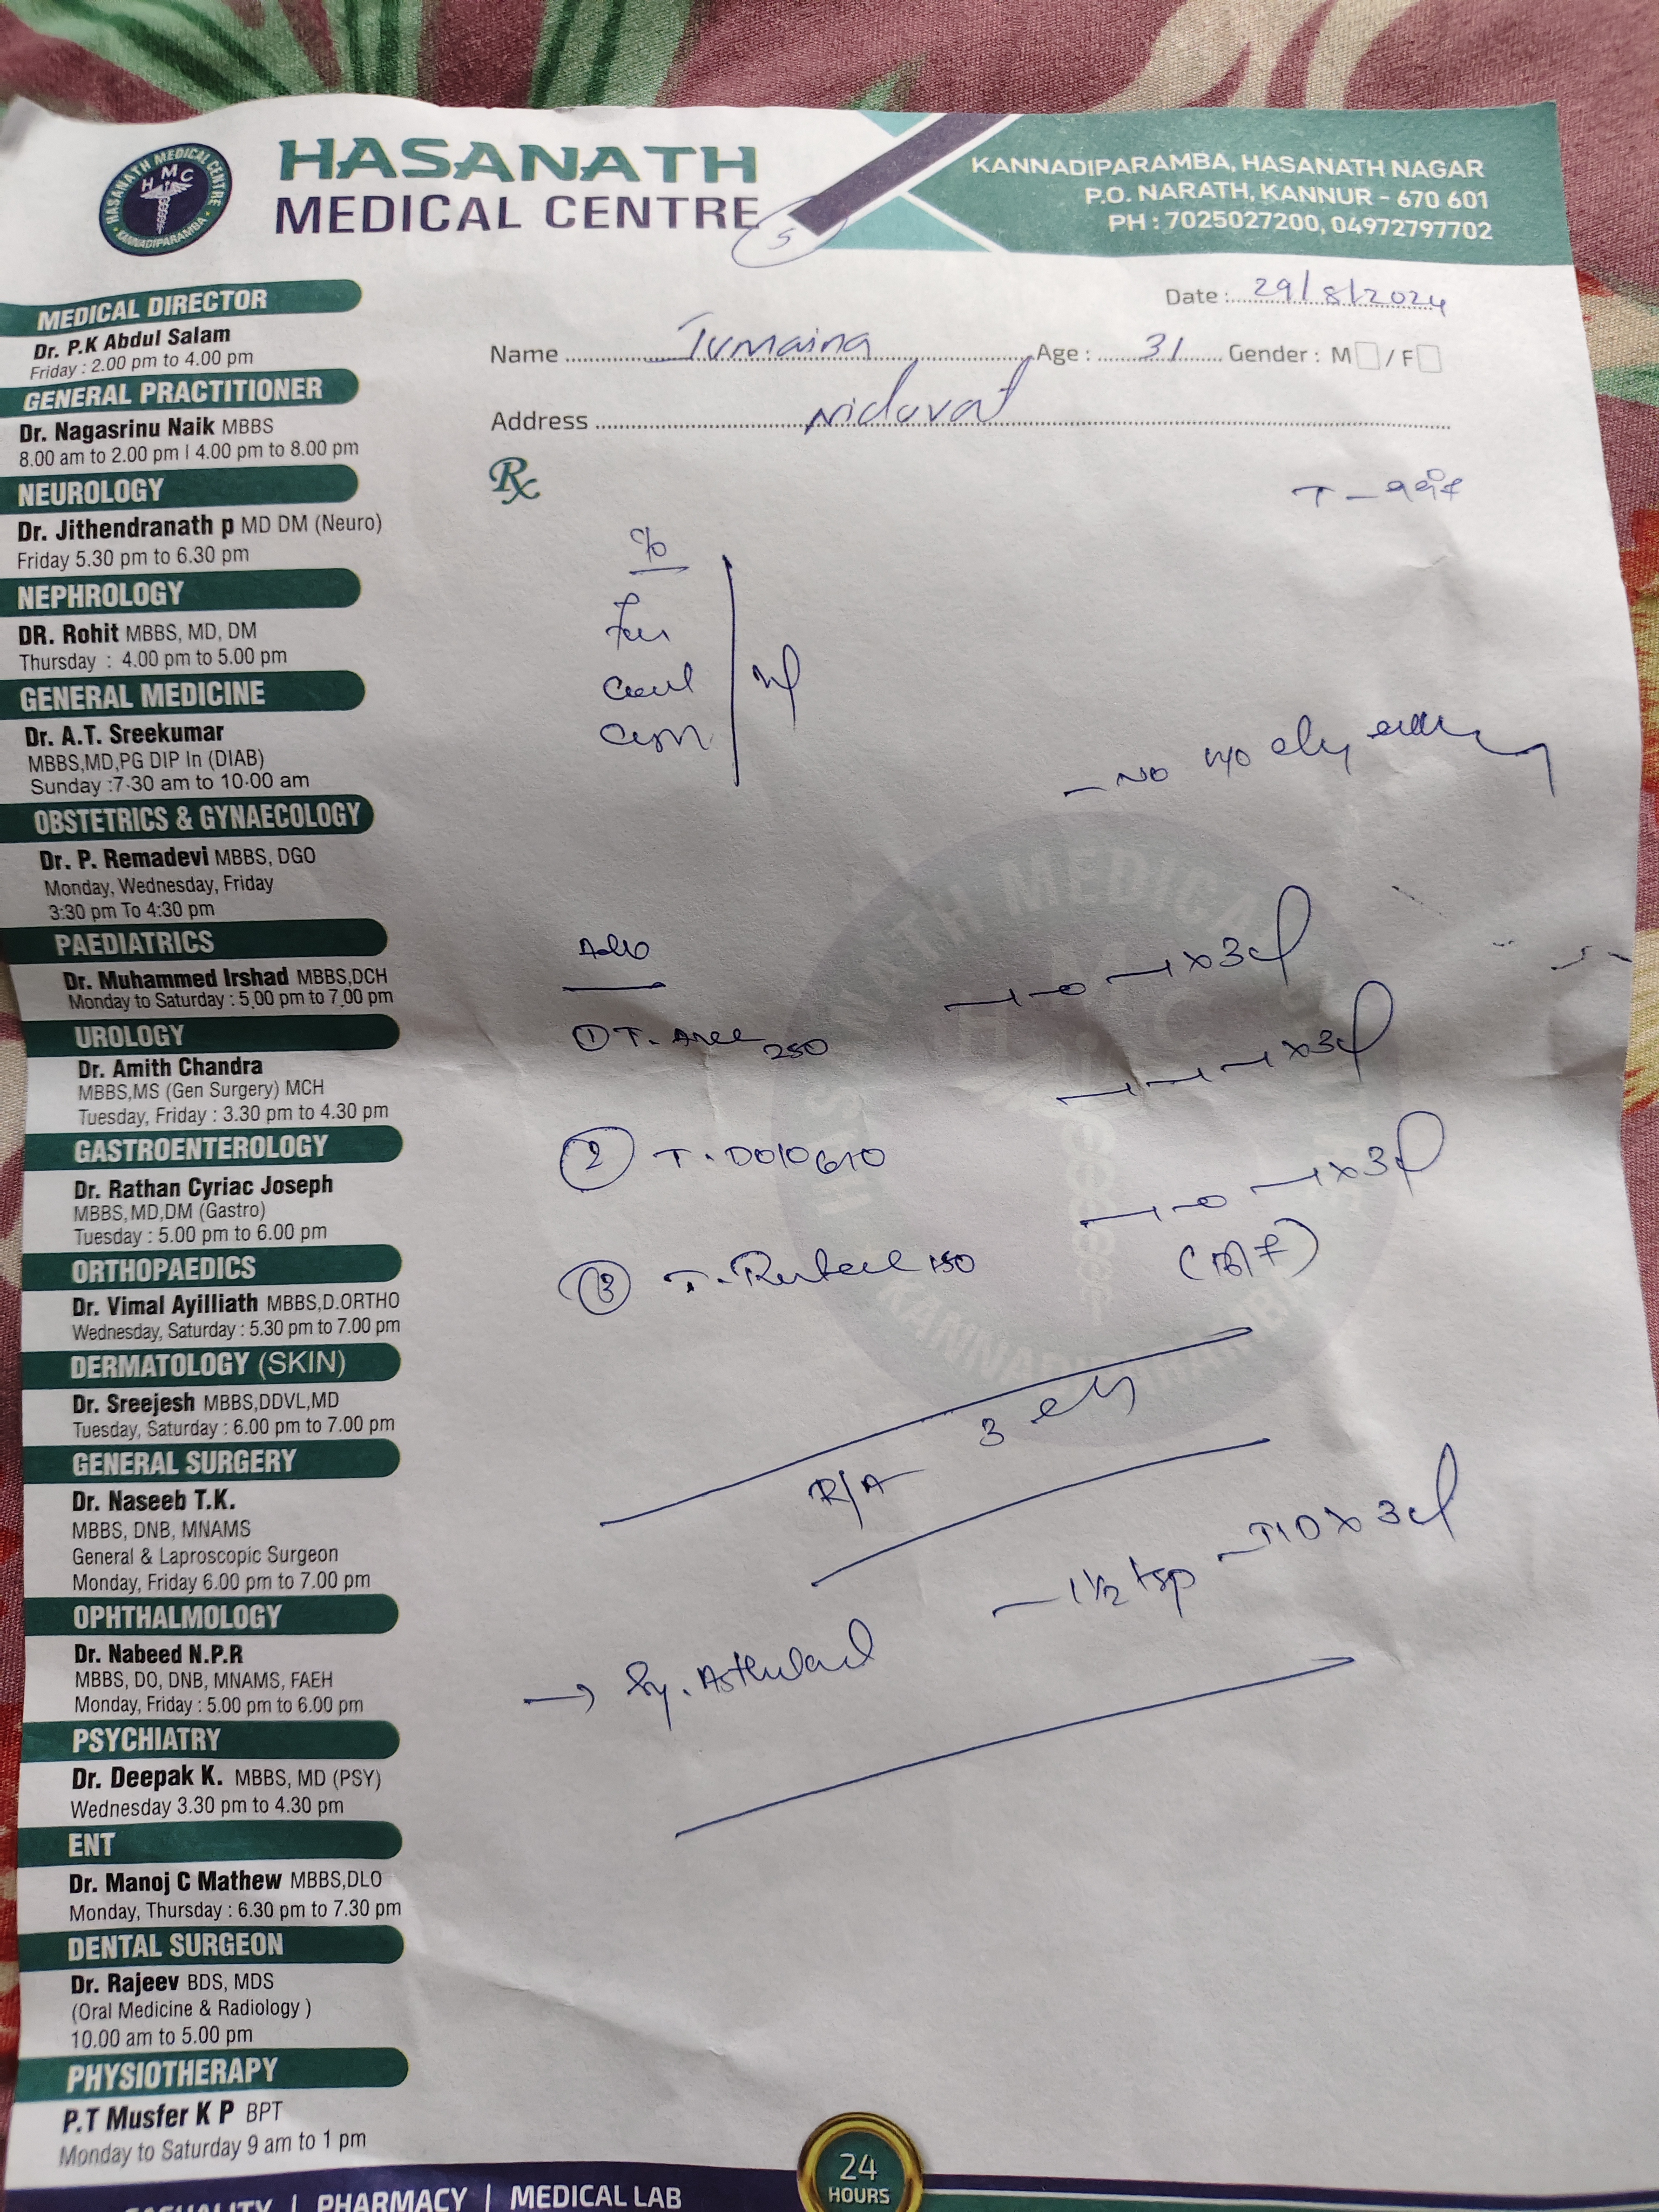 HASANATH MEDICAL CENTRE
HMC
KANNADIPARAMBA
HASANATH
MEDICAL CENTRE
5
KANNADIPARAMBA, HASANATH NAGAR
P.O. NARATH, KANNUR - 670 601
PH : 7025027200, 04972797702
Date : 29/8/2024
Name Jumaina Age : 31 Gender : M / F
Address
Rx
MEDICAL DIRECTOR
Dr. P.K Abdul Salam
Friday : 2.00 pm to 4.00 pm
GENERAL PRACTITIONER
Dr. Nagasrinu Naik MBBS
8.00 am to 2.00 pm | 4.00 pm to 8.00 pm
NEUROLOGY
Dr. Jithendranath p MD DM (Neuro)
Friday 5.30 pm to 6.30 pm
NEPHROLOGY
DR. Rohit MBBS, MD, DM
Thursday : 4.00 pm to 5.00 pm
GENERAL MEDICINE
Dr. A.T. Sreekumar
MBBS,MD,PG DIP In (DIAB)
Sunday :7-30 am to 10-00 am
OBSTETRICS & GYNAECOLOGY
Dr. P. Remadevi MBBS, DGO
Monday, Wednesday, Friday
3:30 pm To 4:30 pm
PAEDIATRICS
Dr. Muhammed Irshad MBBS,DCH
Monday to Saturday : 5.00 pm to 7.00 pm
UROLOGY
Dr. Amith Chandra
MBBS,MS (Gen Surgery) MCH
Tuesday, Friday : 3.30 pm to 4.30 pm
GASTROENTEROLOGY
Dr. Rathan Cyriac Joseph
MBBS,MD,DM (Gastro)
Tuesday : 5.00 pm to 6.00 pm
ORTHOPAEDICS
Dr. Vimal Ayilliath MBBS,D.ORTHO
Wednesday, Saturday : 5.30 pm to 7.00 pm
DERMATOLOGY (SKIN)
Dr. Sreejesh MBBS,DDVL,MD
Tuesday, Saturday : 6.00 pm to 7.00 pm
GENERAL SURGERY
Dr. Naseeb T.K.
MBBS, DNB, MNAMS
General & Laproscopic Surgeon
Monday, Friday 6.00 pm to 7.00 pm
OPHTHALMOLOGY
Dr. Nabeed N.P.R
MBBS, DO, DNB, MNAMS, FAEH
Monday, Friday : 5.00 pm to 6.00 pm
PSYCHIATRY
Dr. Deepak K. MBBS, MD (PSY)
Wednesday 3.30 pm to 4.30 pm
ENT
Dr. Manoj C Mathew MBBS,DLO
Monday, Thursday : 6.30 pm to 7.30 pm
DENTAL SURGEON
Dr. Rajeev BDS, MDS
(Oral Medicine & Radiology )
10.00 am to 5.00 pm
PHYSIOTHERAPY
P.T Musfer K P BPT
Monday to Saturday 9 am to 1 pm
c/o
- No
① T. 250 1-0-1x3d
② T. Dolo 1-1-1x3d
③ T. 150 1-0-1x3d
(B/F)
R/A 3
→ Sy. - 1 1/2 tsp - TID x 3d
CASUALITY | PHARMACY | MEDICAL LAB
24
HOURS